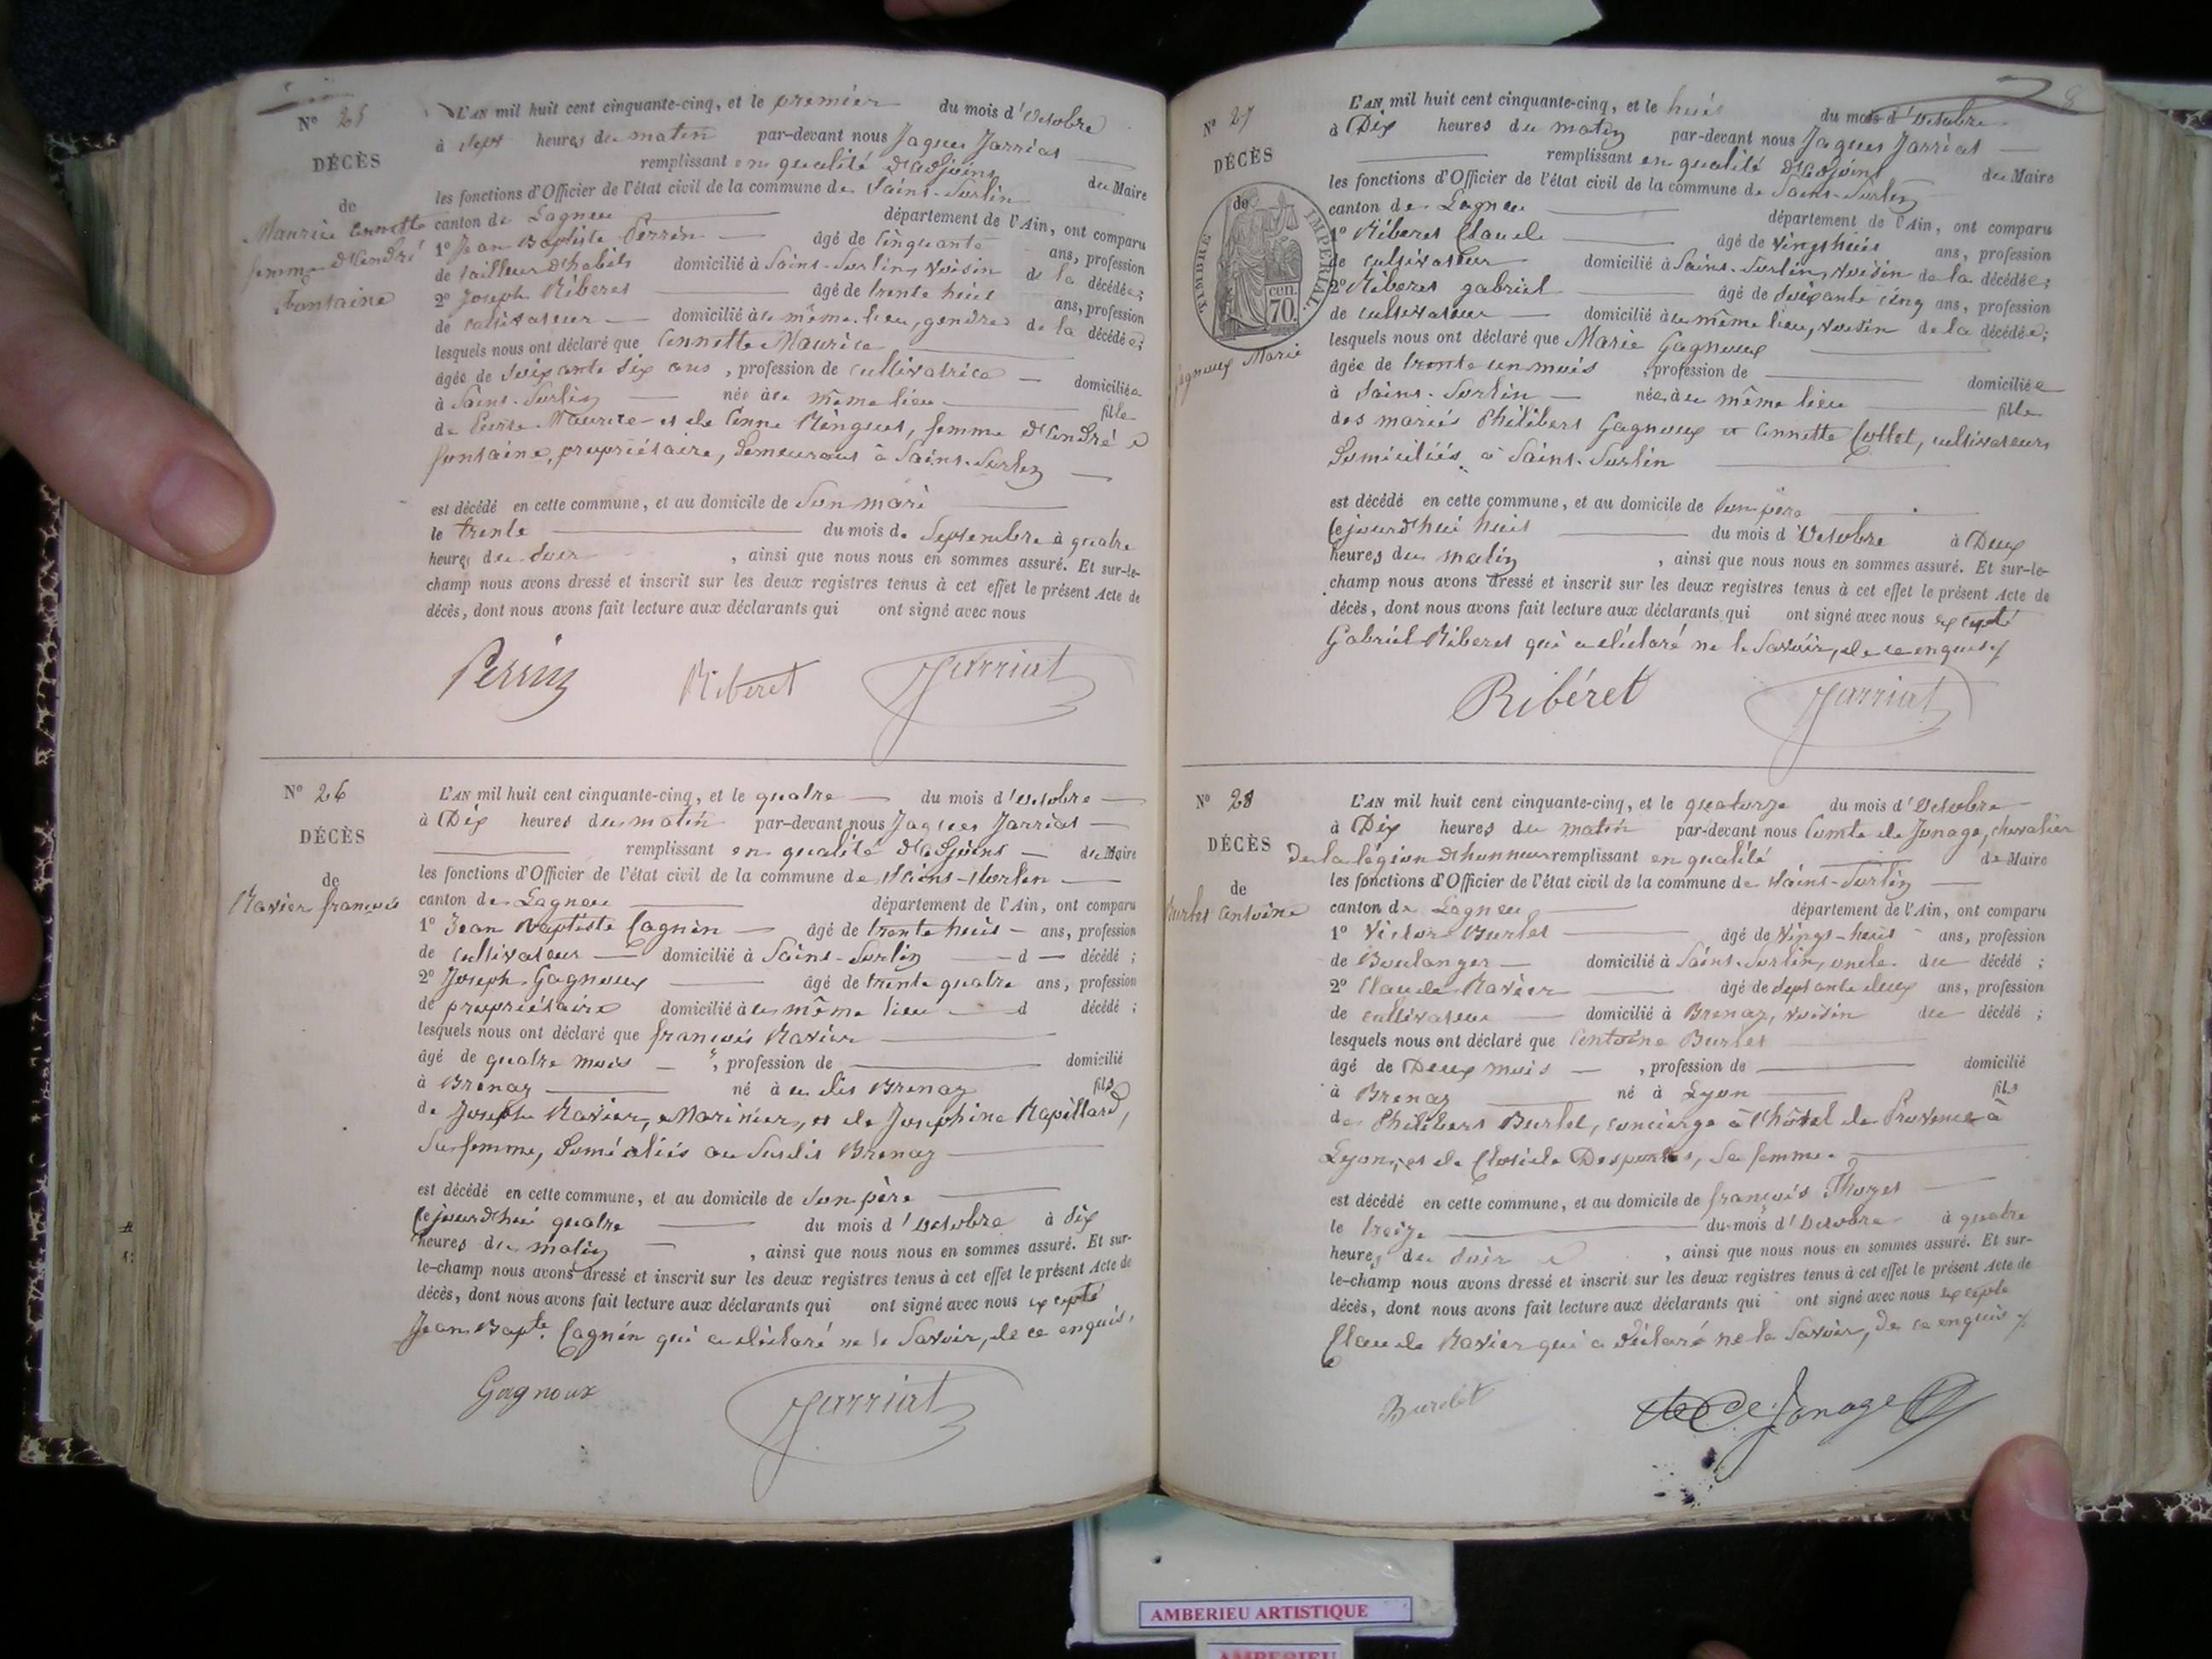 N° 25
DÉCÈS
de
Maurice Annette
femme d'André
Fontaine
L'AN mil huit cent cinquante-cinq, et le premier du mois d'Octobre
à sept heures du matin par-devant nous Jaques Jarriat
remplissant en qualité d'adjoint du Maire
les fonctions d'Officier de l'état civil de la commune de Saint-Surlin
canton de Lagneu département de l'Ain, ont comparu
1° Jean Baptiste Perrin âgé de Cinquante ans, profession
de tailleur d'habits domicilié à Saint-Surlin, voisin de la décédée;
2° Joseph Riberet âgé de trente huit ans, profession
de cultivateur domicilié au même lieu, gendre de la décédée;
lesquels nous ont déclaré que Annette Maurice
âgée de soixante dix ans, profession de cultivatrice domiciliée
à Saint-Surlin née au même lieu fille
de Pierre Maurice et de Anne Ringuet, femme d'André
fontaine, propriétaire, demeurant à Saint-Surlin
est décédé en cette commune, et au domicile de son mari
le trente du mois de Septembre à quatre
heures du soir, ainsi que nous nous en sommes assuré. Et sur-le-
champ nous avons dressé et inscrit sur les deux registres tenus à cet effet le présent Acte de
décès, dont nous avons fait lecture aux déclarants qui ont signé avec nous
Perrin Riberet Jarriat
N° 26
DÉCÈS
de
Ravier françois
L'AN mil huit cent cinquante-cinq, et le quatre du mois d'Octobre
à Dix heures du matin par-devant nous Jaques Jarriat
remplissant en qualité d'adjoint du Maire
les fonctions d'Officier de l'état civil de la commune de Saint-Surlin
canton de Lagneu département de l'Ain, ont comparu
1° Jean Baptiste Cagnin âgé de trente huit ans, profession
de cultivateur domicilié à Saint-Surlin d décédé;
2° Joseph Gagnoux âgé de trente quatre ans, profession
de propriétaire domicilié au même lieu d décédé;
lesquels nous ont déclaré que françois Ravier
âgé de quatre mois, profession de domicilié
à Brenaz né à au dit Brenaz fils
de Joseph Ravier, Marinier, et de Josephine Rapillard,
sa femme, domiciliés au susdit Brenaz
est décédé en cette commune, et au domicile de son père
Cejourd'hui quatre du mois d'Octobre à dix
heures du matin, ainsi que nous nous en sommes assuré. Et sur-
le-champ nous avons dressé et inscrit sur les deux registres tenus à cet effet le présent Acte de
décès, dont nous avons fait lecture aux déclarants qui ont signé avec nous excepté
Jean Bapte. Cagnin qui a déclaré ne le savoir, de ce enquis,
Gagnoux Jarriat
8
N° 27
DÉCÈS
de
TIMBRE IMPERIAL.
70 cen.
Gagnoux Marie
L'AN mil huit cent cinquante-cinq, et le huit du mois d'Octobre
à Dix heures du matin par-devant nous Jaques Jarriat
remplissant en qualité d'adjoint du Maire
les fonctions d'Officier de l'état civil de la commune de Saint-Surlin
canton de Lagneu département de l'Ain, ont comparu
1° Riberet Claude âgé de vingt huit ans, profession
de cultivateur domicilié à Saint-Surlin, voisin de la décédée;
2° Riberet gabriel âgé de soixante cinq ans, profession
de cultivateur domicilié au même lieu, voisin de la décédée;
lesquels nous ont déclaré que Marie Gagnoux
âgée de trente un mois, profession de domiciliée
à Saint-Surlin née au même lieu fille
des mariés Philibert Gagnoux et Annette Collet, cultivateurs
domiciliés à Saint-Surlin
est décédé en cette commune, et au domicile de son père
Cejourd'hui huit du mois d'Octobre à Deux
heures du matin, ainsi que nous nous en sommes assuré. Et sur-le-
champ nous avons dressé et inscrit sur les deux registres tenus à cet effet le présent Acte de
décès, dont nous avons fait lecture aux déclarants qui ont signé avec nous excepté
Gabriel Riberet qui a déclaré ne le savoir, de ce enquis
Ribéret Jarriat
N° 28
DÉCÈS
de
Burlet Antoine
L'AN mil huit cent cinquante-cinq, et le quatorze du mois d'Octobre
à Dix heures du matin par-devant nous Comte de Jonage, chevalier
De la légion d'honneur remplissant en qualité de Maire
les fonctions d'Officier de l'état civil de la commune de Saint-Surlin
canton de Lagneu département de l'Ain, ont comparu
1° Victor Burlet âgé de vingt-huit ans, profession
de Boulanger domicilié à Saint-Surlin, oncle du décédé;
2° Claude Ravier âgé de septante deux ans, profession
de cultivateur domicilié à Brenaz, voisin du décédé;
lesquels nous ont déclaré que Antoine Burlet
âgé de Deux mois, profession de domicilié
à Brenaz né à Lyon fils
de Philibert Burlet, concierge à l'hôtel de Provence à
Lyon, et de Clotilde Desportes, sa femme
est décédé en cette commune, et au domicile de françois Thozet
le treize du mois d'Octobre à quatre
heures du soir, ainsi que nous nous en sommes assuré. Et sur-
le-champ nous avons dressé et inscrit sur les deux registres tenus à cet effet le présent Acte de
décès, dont nous avons fait lecture aux déclarants qui ont signé avec nous excepté
Claude Ravier qui a déclaré ne le savoir, de ce enquis
Burlet de Jonage
AMBERIEU ARTISTIQUE
AMBERIEU